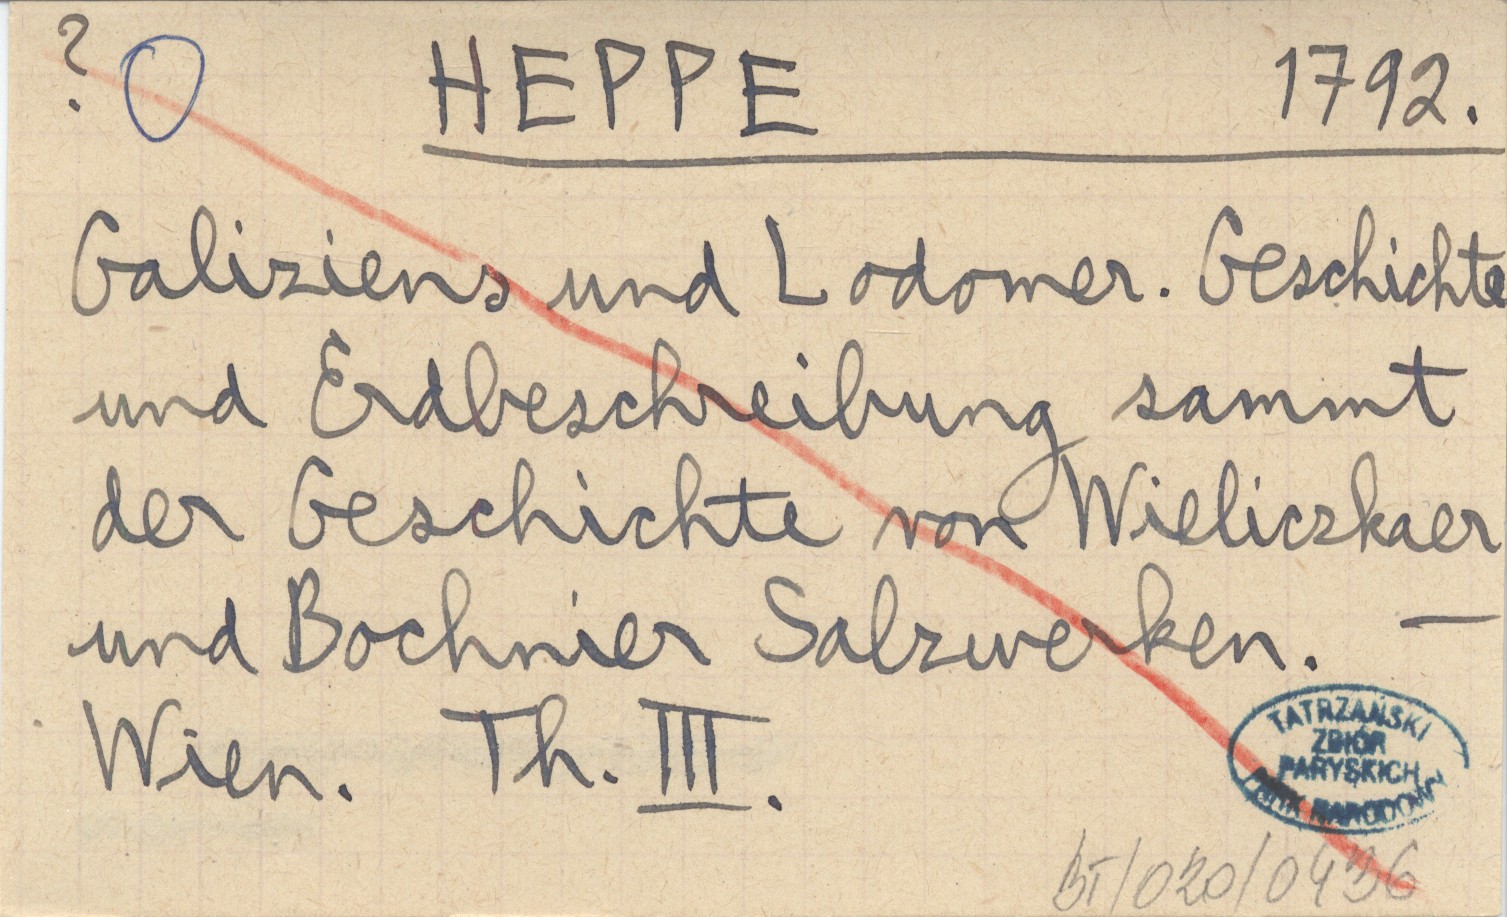 ?
HEPPE 1792.
Galiziens und Lodomer. Geschichte
und Erdbeschreibung sammt
der Geschichte von Wieliczkaer
und Bochnier Salzwerken. —
Wien. Th. III.
TATRZAŃSKI
ZBIÓR
PARYSKICH
PARK NARODOWY
BT/020/0436